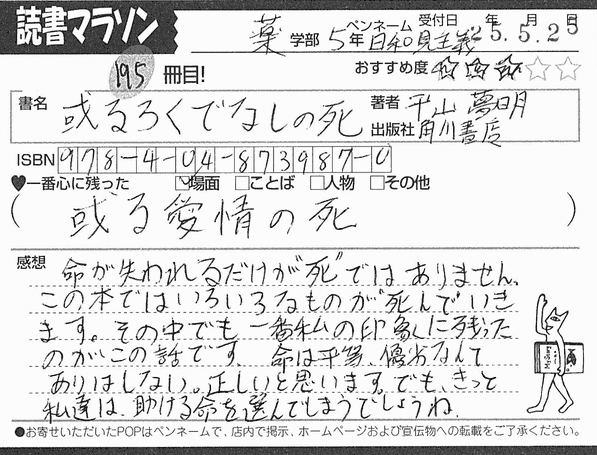 読書マラソン
薬 学部 5年 ペンネーム 日和見主義 受付日 25年5月25日
195 冊目!
おすすめ度 ★★★☆☆
書名 或るろくでなしの死
著者 平山夢明
出版社 角川書店
ISBN 978-4-04-873987-0
♥一番心に残った ☑場面 □ことば □人物 □その他
( 或る愛情の死 )
感想 命が失われるだけが“死”ではありません、
この本ではいろいろなものが死んでいき
ます。その中でも一番私の印象に残った
のがこの話です。命は平等、優劣なんて
ありはしない。正しいと思います。でも、きっと
私達は、助ける命を選んでしまうでしょうね。
●お寄せいただいたPOPはペンネームで、店内で掲示、ホームページおよび宣伝物への転載をご了承ください。